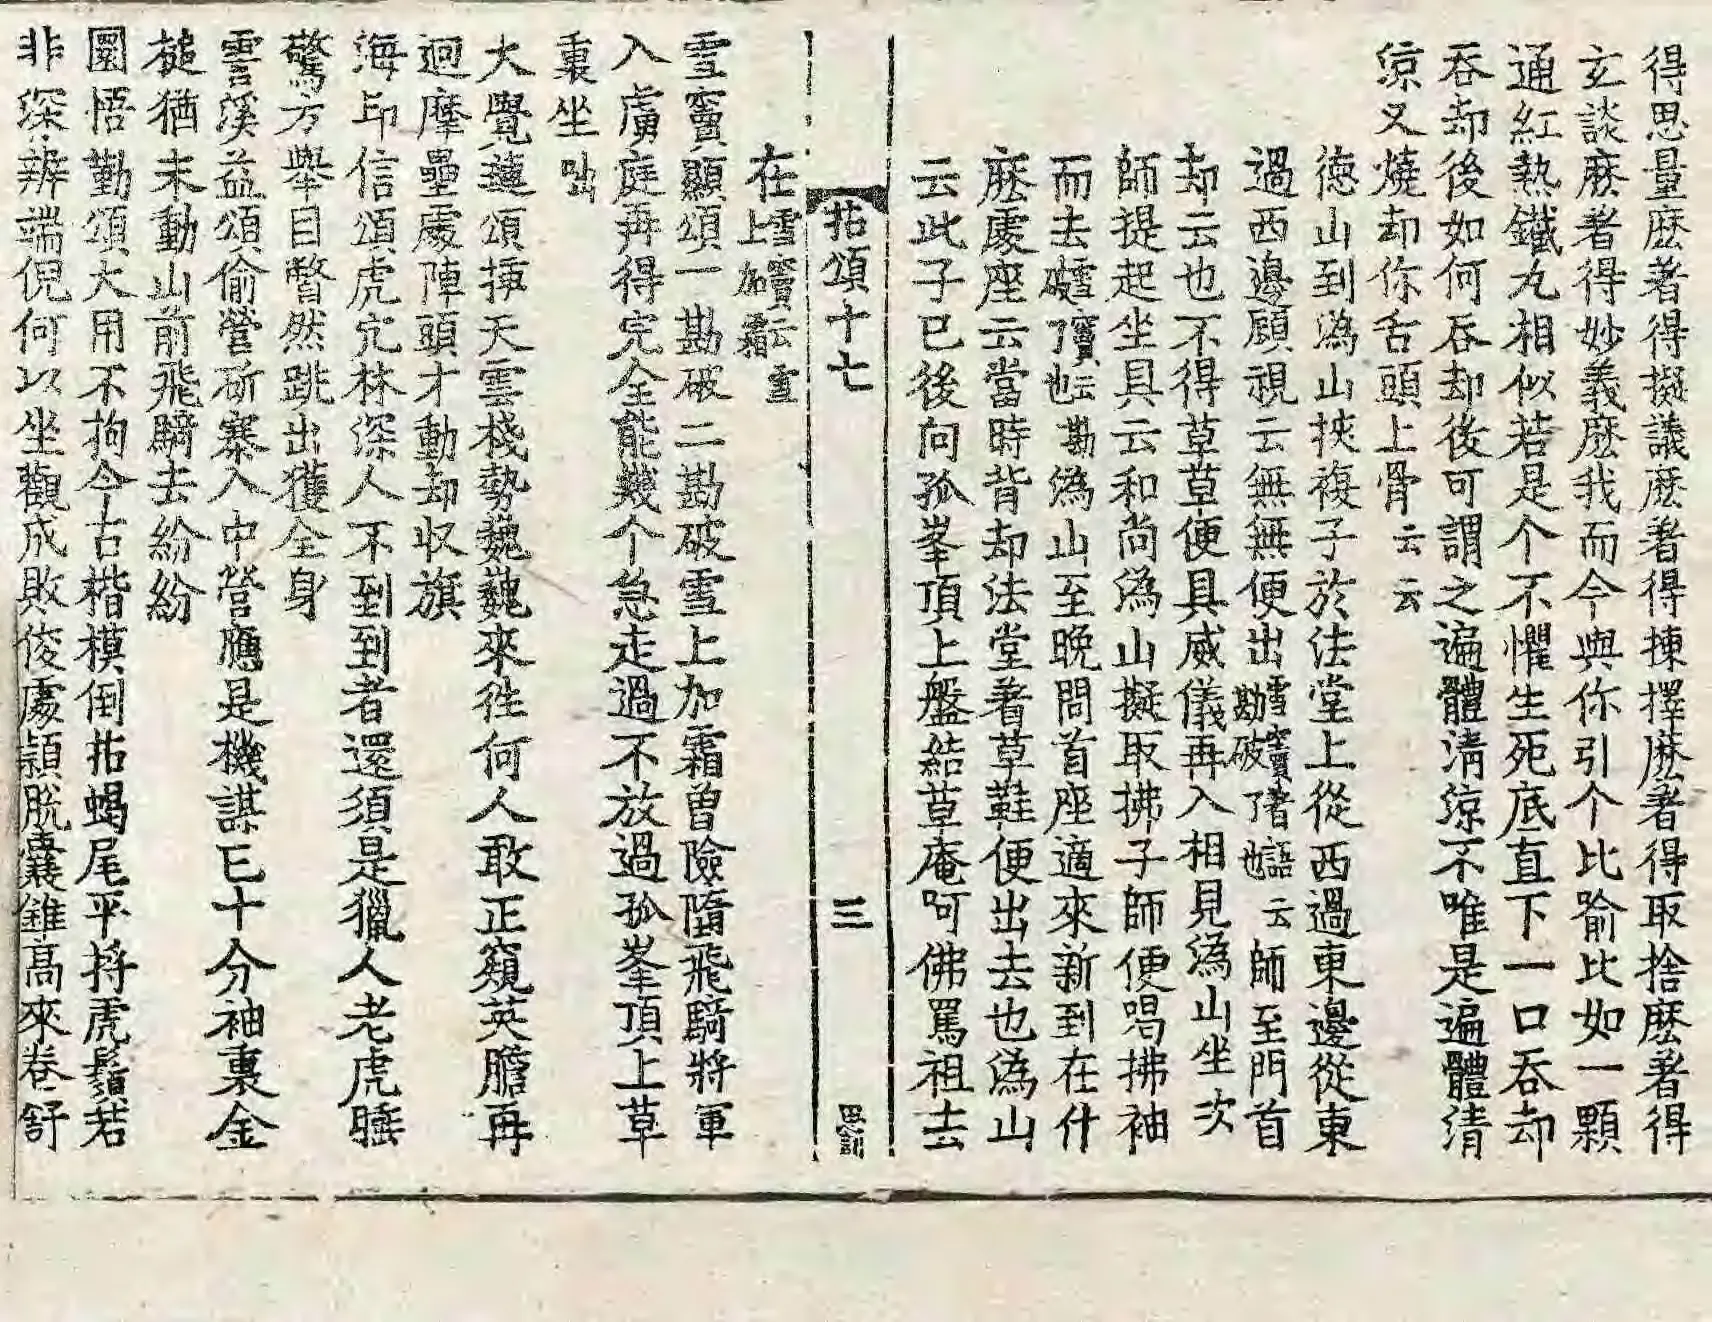 得思量麽著得擬議麽著得揀擇麽著得取捨麽著得
玄談麽著得妙義麽我而今與你引个比喻比如一顆
通紅熱鐵丸相似若是个不懼生死底直下一口吞却
吞却後如何吞却後可謂之遍體清涼不唯是遍體清
涼又燒却你舌頭上骨云云
德山到潙山挾複子於法堂上從西過東邊從東
過西邊顧視云無無便出雪竇著語云勘破了也師至門首
却云也不得草草便具威儀再入相見潙山坐次
師提起坐具云和尚潙山擬取拂子師便喝拂袖
而去雪竇云勘破了也潙山至晚問首座適來新到在什
麽處座云當時背却法堂著草鞋便出去也潙山
云此子已後向孤峯頂上盤結草庵呵佛罵祖去
拈頌十七 三 思訓
在雪竇云雪上加霜
雪竇顯頌一勘破二勘破雪上加霜曾險墮飛騎將軍
入虜庭再得完全能幾个急走過不放過孤峯頂上草
裏坐咄
大覺璉頌揷天雲棧勢巍巍來往何人敢正窺英膽再
迴摩壘處陣頭才動却収旗
海印信頌虎穴林深人不到到者還須是獵人老虎睡
驚方擧目瞥然跳出獲全身
雲溪益頌偷營斫寨入中營應是機謀已十分袖裏金
槌猶未動山前飛騎去紛紛
圜悟勤頌大用不拘今古楷模倒拈蝎尾平捋虎鬚若
非深辨端倪何以坐觀成敗俊處頴脫囊錐高來卷舒